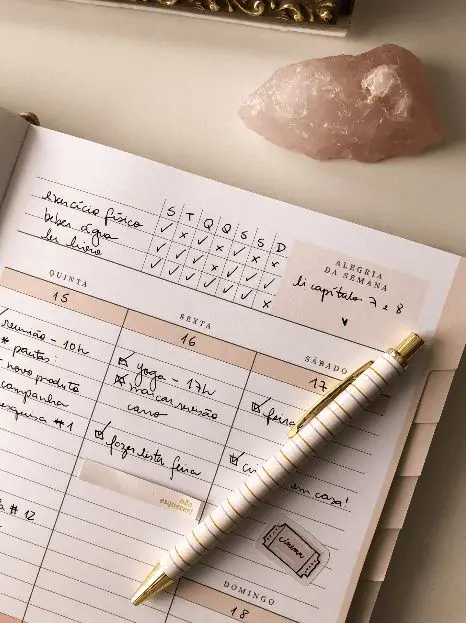 S T Q Q S S D
exercício físico
beber água
ler livro
ALEGRIA
DA SEMANA
li capítulo 7 e 8
QUINTA
15
reunião - 10h
* pautas:
novo produto
campanha
#1
#12
SEXTA
16
yoga - 17h
marcar revisão
carro
fazer lista feira
não
esquecer!
SÁBADO
17
feira
em casa!
cinema
DOMINGO
18